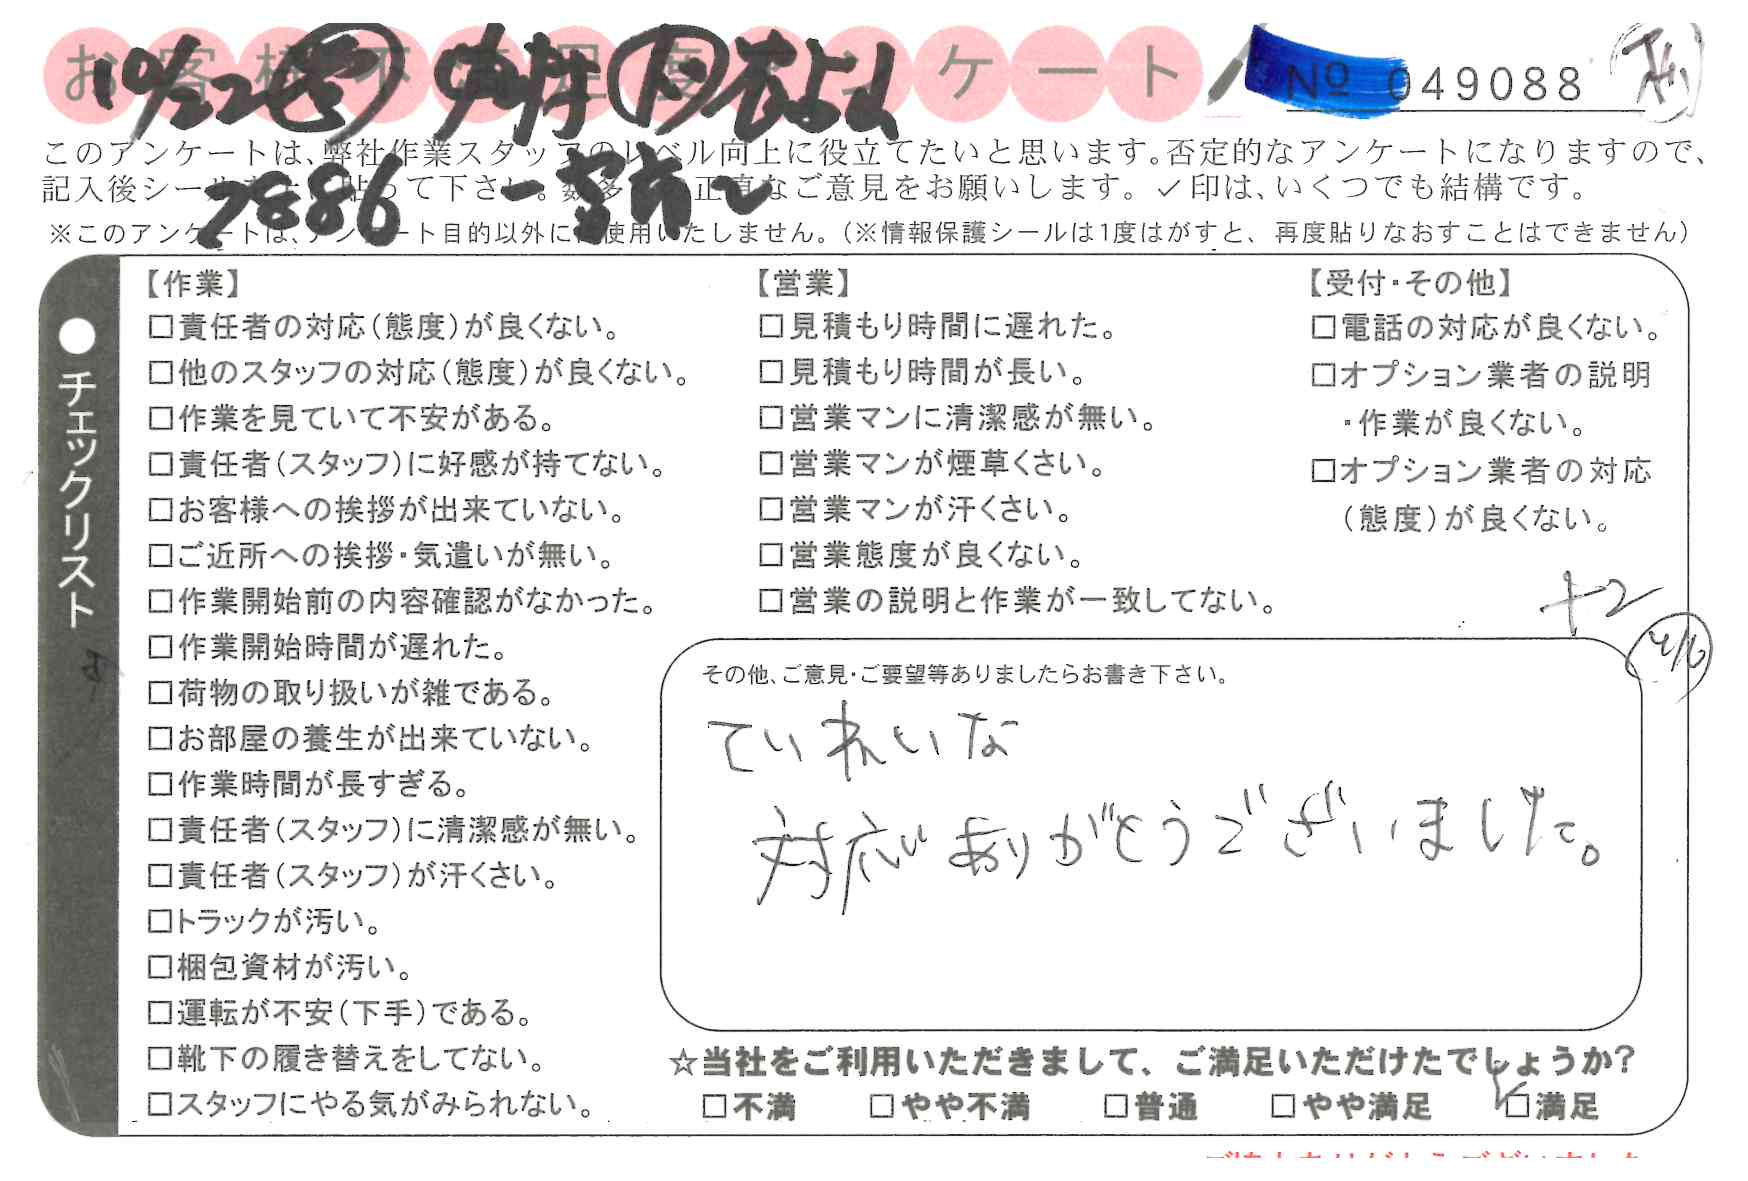 お客様不満足度アンケート
10/22
No 049088
このアンケートは、弊社作業スタッフのレベル向上に役立てたいと思います。否定的なアンケートになりますので、
記入後シールを上に貼って下さい。数多くの正直なご意見をお願いします。✓印は、いくつでも結構です。
7886
※このアンケートは、アンケート目的以外には使用いたしません。(※情報保護シールは1度はがすと、再度貼りなおすことはできません)
●チェックリスト
【作業】
□責任者の対応(態度)が良くない。
□他のスタッフの対応(態度)が良くない。
□作業を見ていて不安がある。
□責任者(スタッフ)に好感が持てない。
□お客様への挨拶が出来ていない。
□ご近所への挨拶・気遣いが無い。
□作業開始前の内容確認がなかった。
□作業開始時間が遅れた。
□荷物の取り扱いが雑である。
□お部屋の養生が出来ていない。
□作業時間が長すぎる。
□責任者(スタッフ)に清潔感が無い。
□責任者(スタッフ)が汗くさい。
□トラックが汚い。
□梱包資材が汚い。
□運転が不安(下手)である。
□靴下の履き替えをしてない。
□スタッフにやる気がみられない。
【営業】
□見積もり時間に遅れた。
□見積もり時間が長い。
□営業マンに清潔感が無い。
□営業マンが煙草くさい。
□営業マンが汗くさい。
□営業態度が良くない。
□営業の説明と作業が一致してない。
【受付・その他】
□電話の対応が良くない。
□オプション業者の説明
・作業が良くない。
□オプション業者の対応
(態度)が良くない。
+2
その他、ご意見・ご要望等ありましたらお書き下さい。
ていねいな
対応ありがとうございました。
☆当社をご利用いただきまして、ご満足いただけたでしょうか?
□不満 □やや不満 □普通 □やや満足 ☑満足